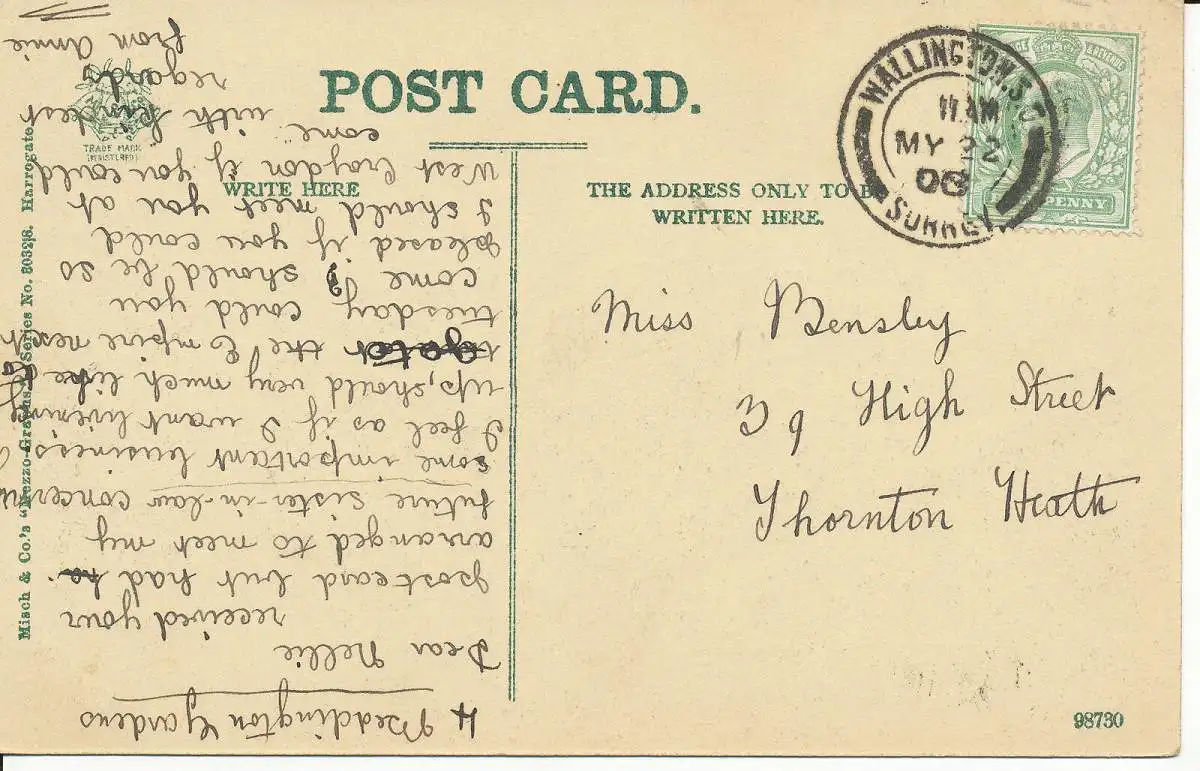 POST CARD.
WRITE HERE
THE ADDRESS ONLY TO BE
WRITTEN HERE.
WALLINGTON. S.O.
11 AM
MY 22
06
SURREY
PENNY
TRADE MARK
(REGISTERED)
Misch & Co.'s "Mezzo-Graphs" Series No. 8032/8. Harrogate.
Miss Bensley
39 High Street
Thornton Heath
98730
4 Beddington Gardens
Dear Nellie
received your
postcard but had
arranged to meet my
future sister-in-law
some important business,
I feel as if I want
up, should very much like
go to the Empire next
tuesday could you
come? I should be so
pleased if you could
I should meet you at
West Croydon if you could
come
with kindest
regards
from Annie